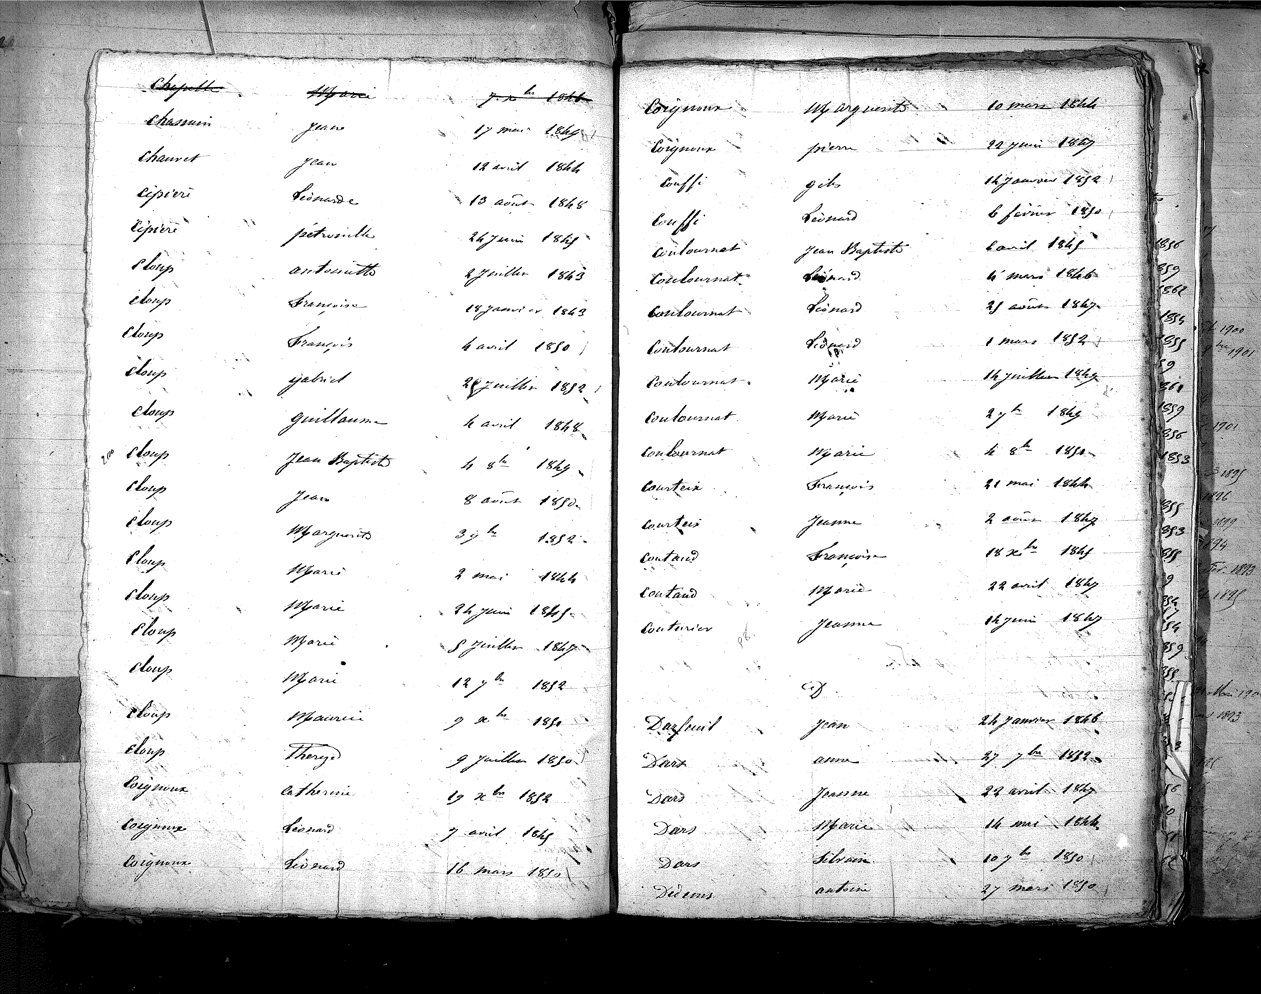 Chapelle Marie 7 xbre 1846
Chassain Jean 17 mai 1849
Chauvet Jean 12 avril 1844
Cipiere Léonarde 13 août 1848
Cipiere pétronille 24 Juin 1845
Cloup antoinette 2 Juillet 1843
Cloup Françoise 18 Janvier 1843
Cloup François 4 avril 1850
Cloup gabriel 2 Juillet 1852
Cloup guillaume 4 avril 1848
200 Cloup Jean Baptiste 4 8bre 1849
Cloup Jean 8 août 1850
Cloup Marguerite 3 9bre 1852
Cloup Marie 2 mai 1844
Cloup Marie 24 Juin 1845
Cloup Marie 5 Juillet 1847
Cloup Marie 12 7bre 1852
Cloup Maurice 9 xbre 1850
Cloup Therese 9 Juillet 1850
Coignoux Catherine 19 xbre 1852
Coignoux Léonard 7 avril 1845
Coignoux Léonard 16 mars 1850
Coignoux Marguerite 10 mars 1844
Coignoux pierre 22 Juin 1847
Couffi 14 Janvier 1852
Couffi Léonard 6 février 1850
Coulournat Jean Baptiste 6 avril 1845
Coulournat Léonard 4 mars 1846
Coulournat Léonard 25 août 1847
Coulournat Léonard 1 mars 1852
Coulournat Marie 14 Juillet 1849
Coulournat Marie 2 7bre 1849
Coulournat Marie 4 8bre 1850
Courteix François 21 mai 1844
Courteix Jeanne 2 août 1847
Coutaud Françoise 18 xbre 1845
Coutaud Marie 22 avril 1847
Couturier Jeanne 14 Juin 1847
D
Darfeuil Jean 24 Janvier 1846
Dars anne 27 7bre 1852
Dars Jeanne 22 avril 1847
Dars Marie 14 mai 1844
Dars Silvain 10 7bre 1850
antoine 27 mars 1850